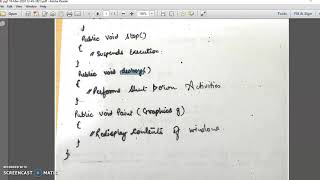 }
Public void stop()
{
// Suspends Execution.
}
Public void destroy()
{
// Performs Shut Down Activities
}
Public void Paint (Graphics g)
{
// Redisplay Contents of windows
}
}
RECORDED WITH
SCREENCAST-O-MATIC